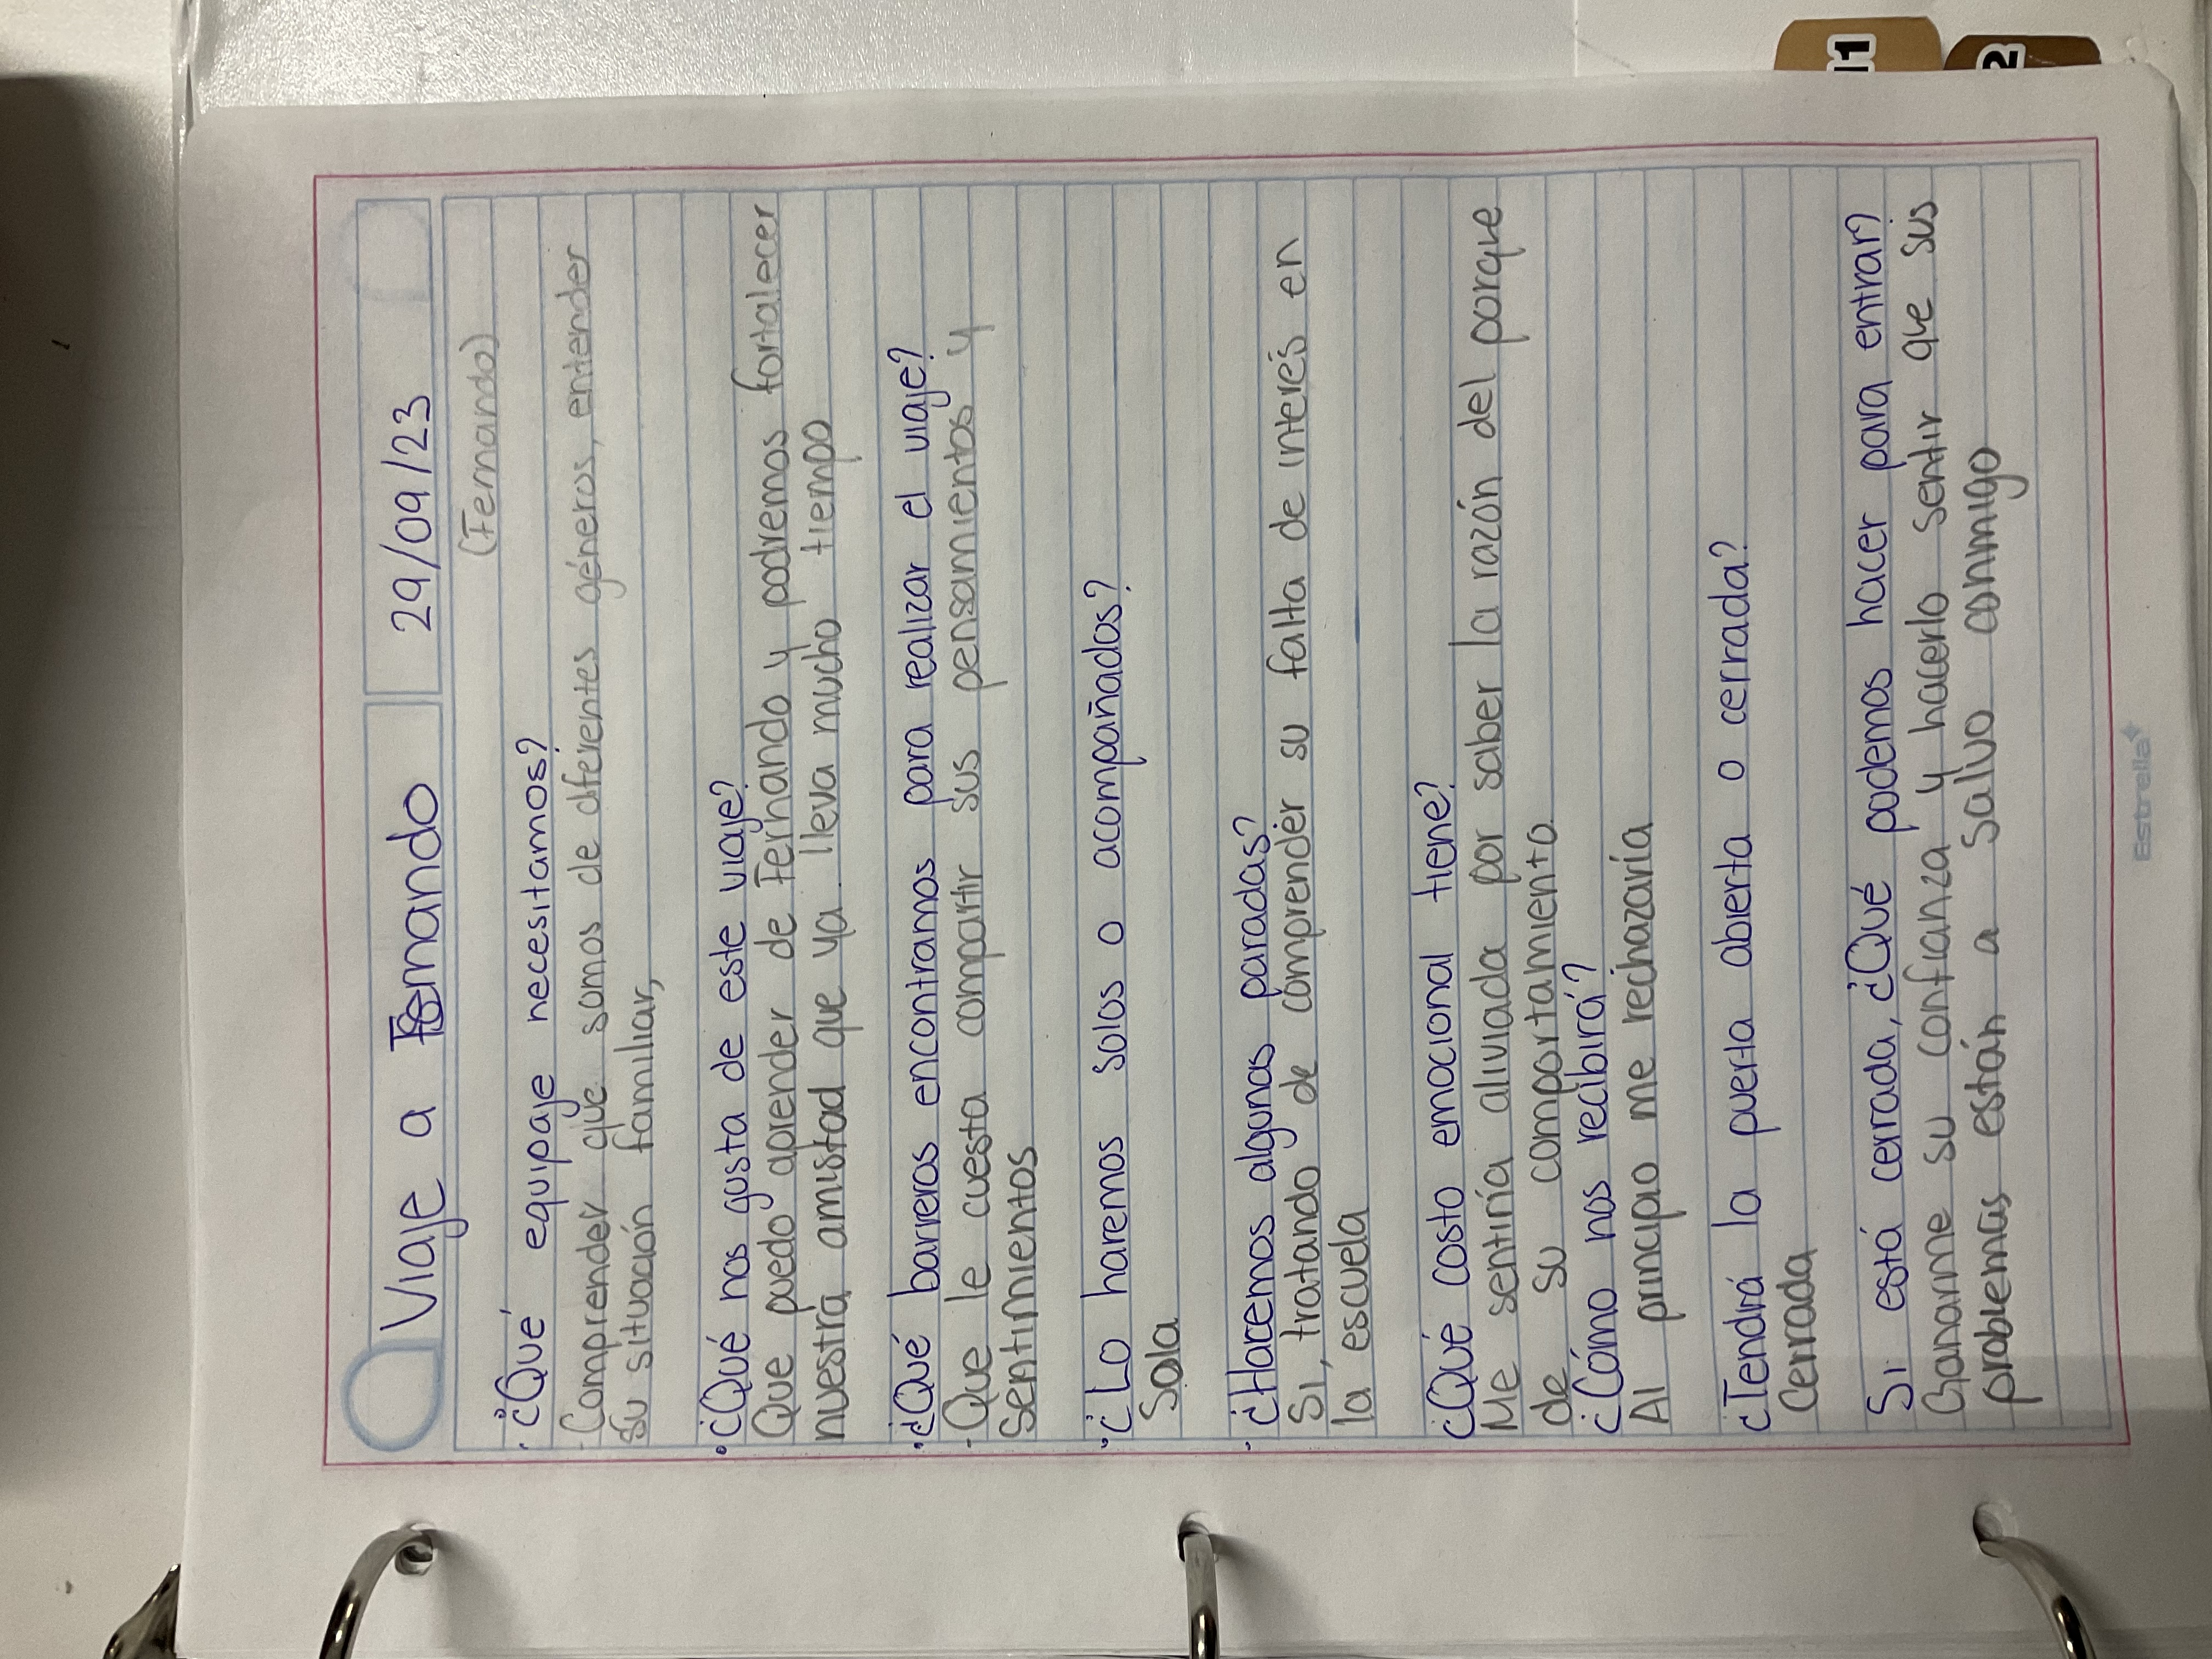 Viaje a Fernando
29/09/23
(Fernando)
· ¿Qué equipaje necesitamos?
· Comprender que somos de diferentes géneros, entender
su situación familiar,
• ¿Qué nos gusta de este viaje?
Que puedo aprender de Fernando y podremos fortalecer
nuestra amistad que ya lleva mucho tiempo
· ¿Qué barreras encontramos para realizar el viaje?
- Que le cuesta compartir sus pensamientos y
sentimientos
· ¿Lo haremos solos o acompañados?
Sola
· ¿Hacemos algunas paradas?
Si, tratando de comprender su falta de interés en
la escuela
¿Qué costo emocional tiene?
Me sentiría aliviada por saber la razón del porque
de su comportamiento
¿Cómo nos recibirá?
Al principio me rechazaría
¿Tendrá la puerta abierta o cerrada?
Cerrada
Si está cerrada, ¿Qué podemos hacer para entrar?
Ganarme su confianza y hacerlo sentir que sus
problemas están a salvo conmigo
Estrella
11
2